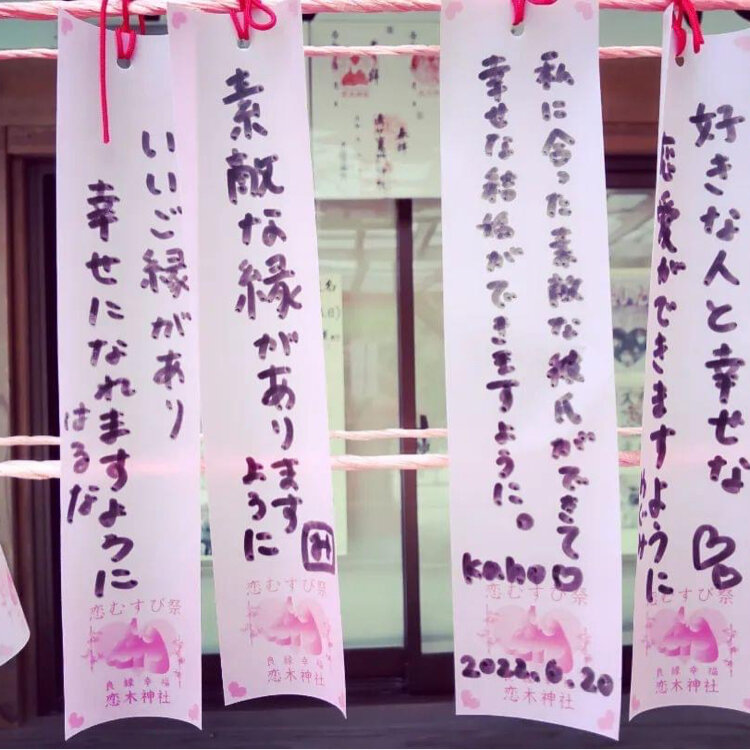 好きな人と幸せな
恋愛ができますように
恋むすび祭
良縁幸福
恋木神社
私に合った素敵な彼氏ができて
幸せな結婚ができますように。
kaho
恋むすび祭
2022.6.20
恋木神社
素敵な縁があります
ように
み
恋むすび祭
良縁幸福
恋木神社
いいご縁があり
幸せになれますように
はるな
恋むすび祭
良縁幸福
恋木神社